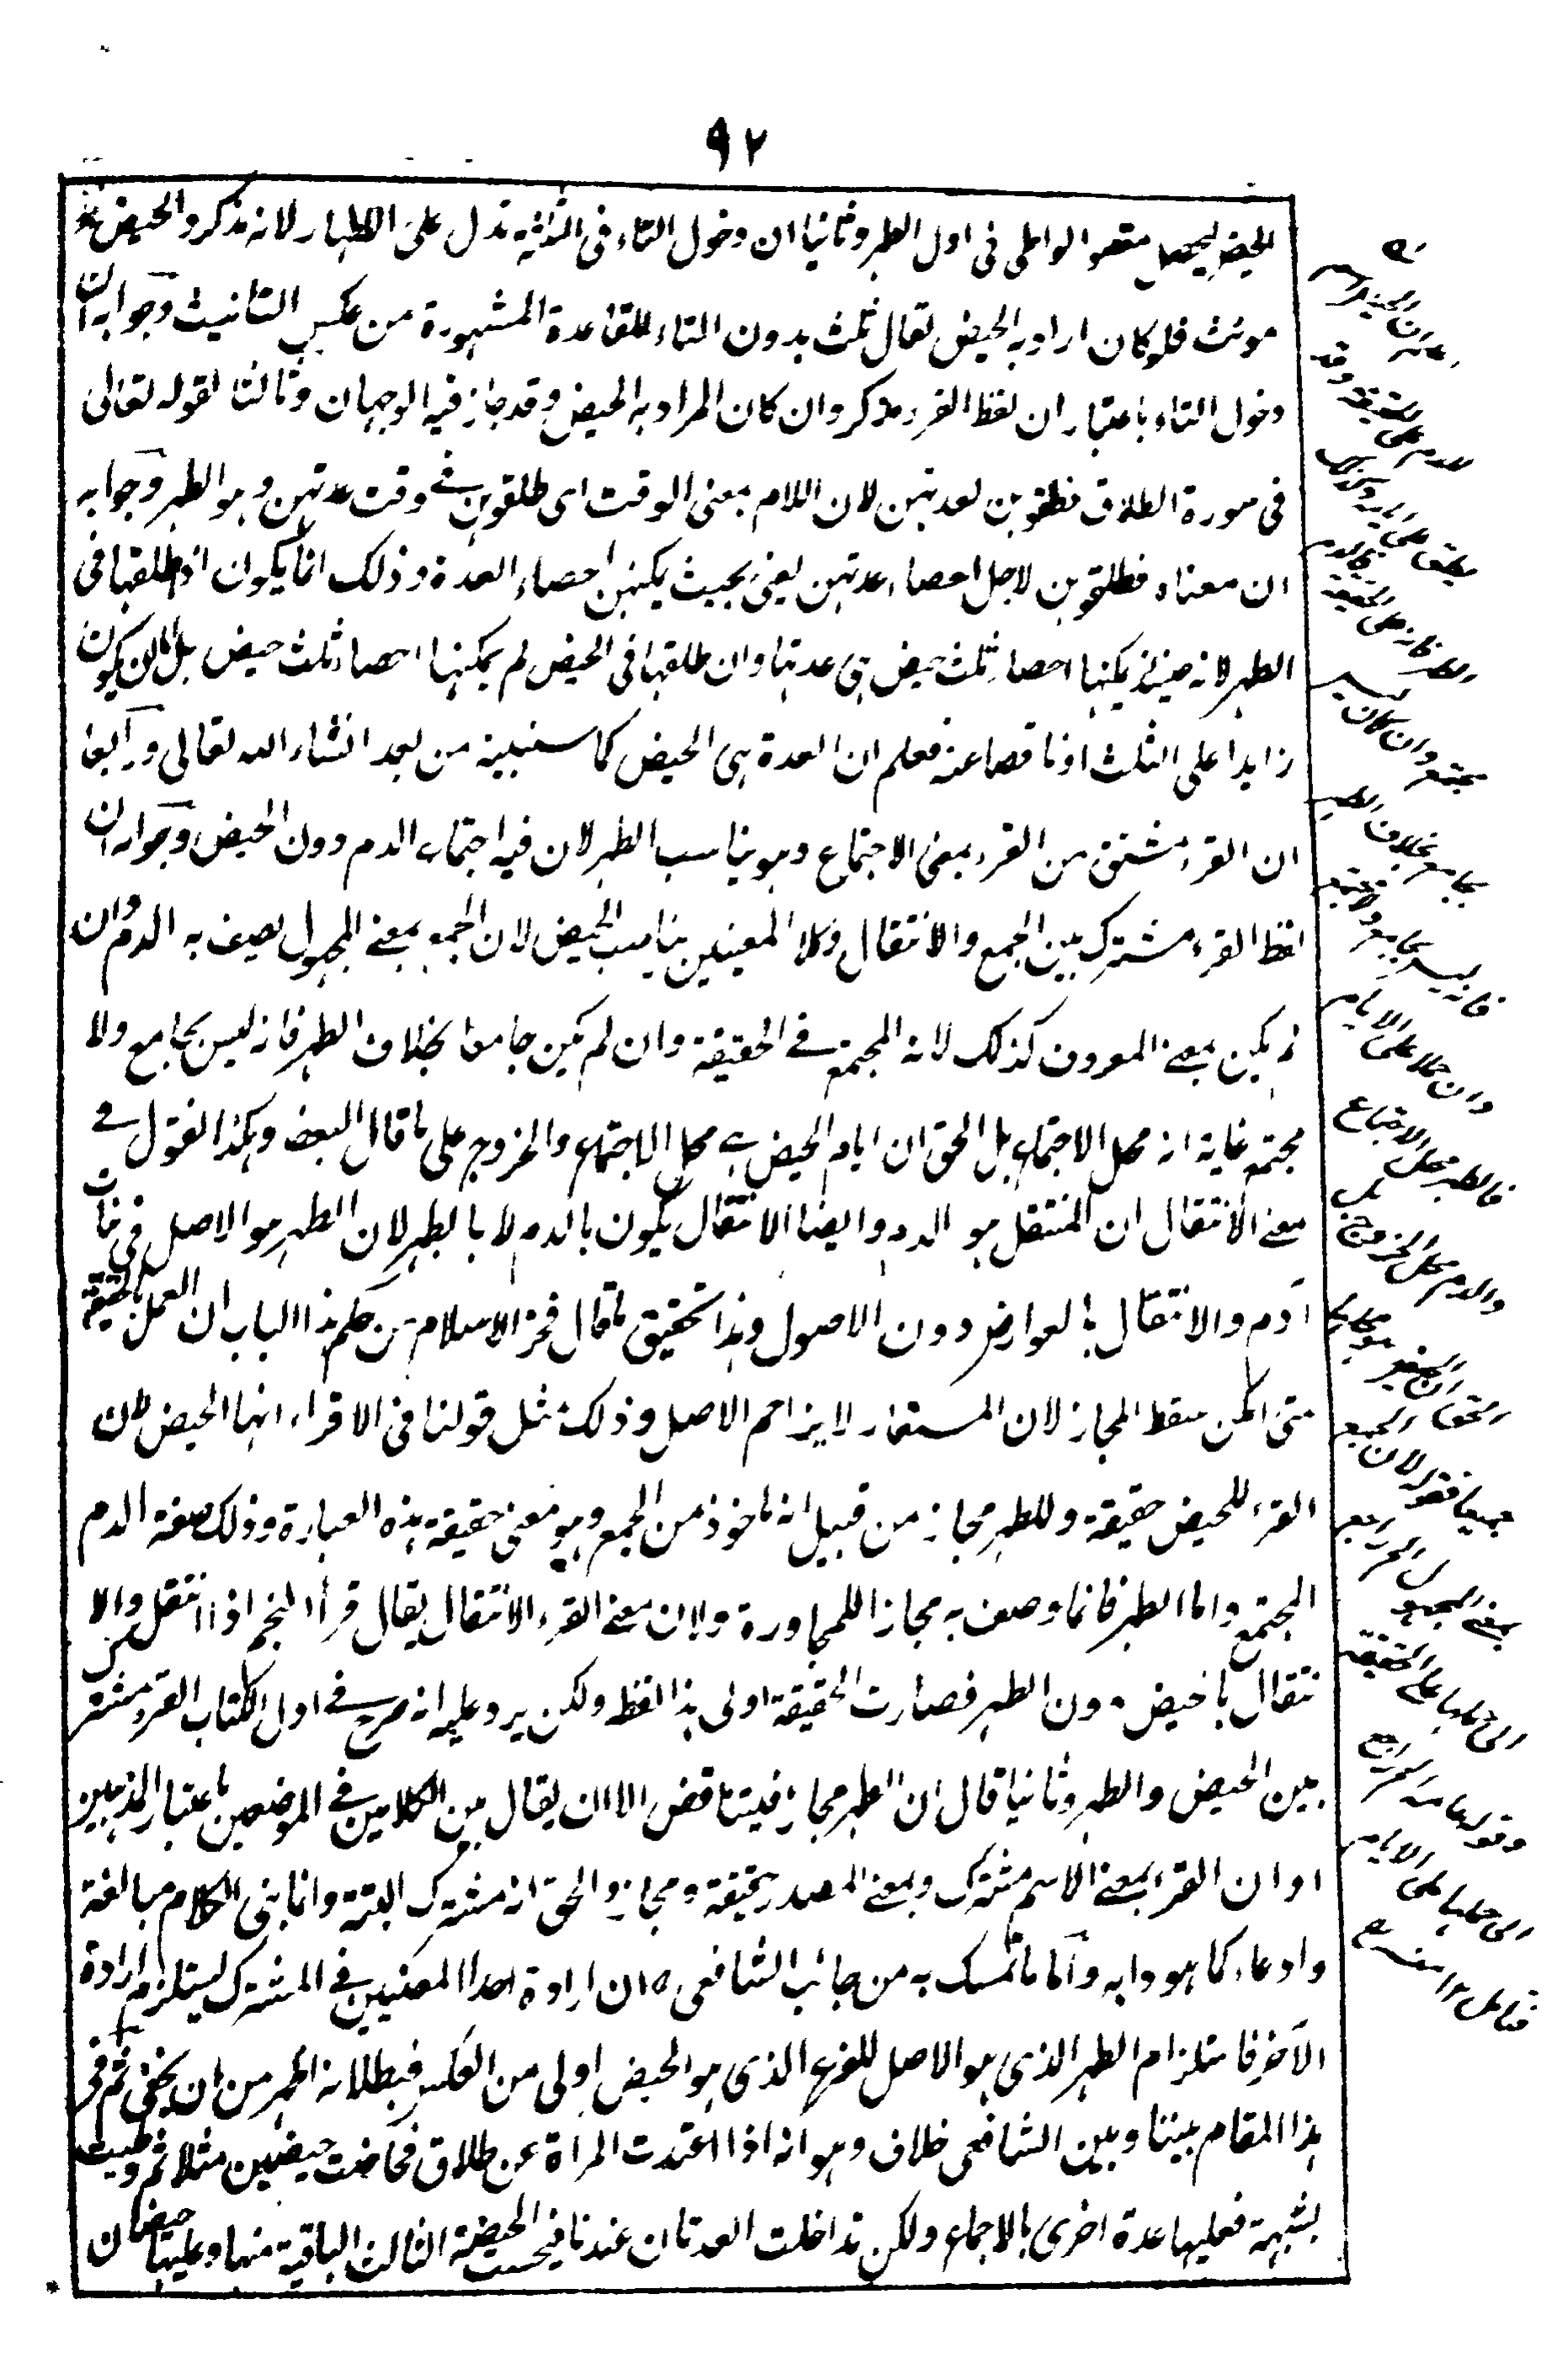 ٩٢
الحيض ليحصل مقصود الواطى فى اول الطهر وثانيا ان دخول التاء فى الثلثة تدل على الاطهار لانه مذكر والحيض
مونث فلو كان اراد به الحيض لقال ثلث بدون التاء للقاعدة المشهورة من عكس التانيث وجوابه ان
دخول التاء باعتبار ان لفظ القرء مذكر وان كان المراد به الحيض وقد جاز فيه الوجهان وثالثا لقوله تعالى
فى سورة الطلاق فطلقوهن لعدتهن لان اللام بمعنى الوقت اى طلقوهن فى وقت عدتهن وهو الطهر وجوابه
ان معناه فطلقوهن لاجل احصاء عدتهن يعنى بحيث يمكنهن احصاء العدة وذلك انما يكون اذا طلقها فى
الطهر لانه حينئذ يمكنها احصاء ثلث حيض هى عدتها وان طلقها فى الحيض لم يمكنها احصاء ثلث حيض بل اما ان يكون
زايدا على الثلث او ناقصا عنه فعلم ان العدة هى الحيض كما سنبينه من بعد انشاء الله تعالى ورابعا
ان القرء مشتق من القرء بمعنى الاجتماع وهو يناسب الطهر لان فيه اجتماع الدم دون الحيض وجوابه ان
لفظ القرء مشترك بين الجمع والانتقال وكلا المعنيين يناسب الحيض لان الجمع بمعنى المجهول يصف به الدم وان
لم يكن بمعنى المعروف كذلك لانه المجتمع فى الحقيقة وان لم يكن جامعا بخلاف الطهر فانه ليس بجامع ولا
مجتمع غاية انه محل الاجتماع بل الحق ان ايام الحيض هى محل الاجتماع والخروج على ما قال البعض وهكذا نقول فى
معنى الانتقال ان المنتقل هو الدم وايضا الانتقال يكون بالدم لا بالطهر لان الطهر هو الاصل فى بنات
آدم والانتقال بالعوارض دون الاصول وهذا تحقيق ما قال فخر الاسلام من حكم هذا الباب ان العمل بالحقيقة
متى امكن سقط المجاز لان المستعار لا يزاحم الاصل وذلك مثل قولنا فى الاقراء انها الحيض لان
القرء للحيض حقيقة وللطهر مجاز من قبيل انه ماخوذ من الجمع وهو معنى حقيقة هذه العبارة وذلك صفة الدم
المجتمع واما الطهر فانما وصف به مجازا للمجاورة ولان معنى القرء الانتقال يقال قرأ النجم اذا انتقل والا
نتقال بالحيض دون الطهر فصارت الحقيقة اولى هذا لفظه ولكن يرد عليه انه صرح فى اول الكتاب القرء مشترك
بين الحيض والطهر وثانيا قال ان الطهر مجاز فيتناقض الا ان يقال بين الكلامين فى الموضعين باعتبار المذهبين
او ان القرء بمعنى الاسم مشترك وبمعنى المصدر حقيقة ومجاز والحق انه مشترك البتة وانما بنى الكلام مبالغة
وادعاء كما هو دابه وأما ما تمسك به من جانب الشافعى ان ارادة احد المعنيين فى المشترك يستلزم ارادة
الآخر فاستلزام الطهر الذى هو الاصل للفرع الذى هو الحيض اولى من العكس فبطلانه اظهر من ان يخفى ثم فى
هذا المقام بيننا وبين الشافعى خلاف وهو انه اذا اعتدت المراة عن طلاق فحاضت حيضتين مثلا ثم وطيت
بشبهة فعليها عدة اخرى بالاجماع ولكن تداخلت العدتان عندنا فيحسب الحيضة الثالث الباقية منها وعليها حيضتان
وان حملا على الايام
فالطهر محل الاجتماع
والدم محل الخروج